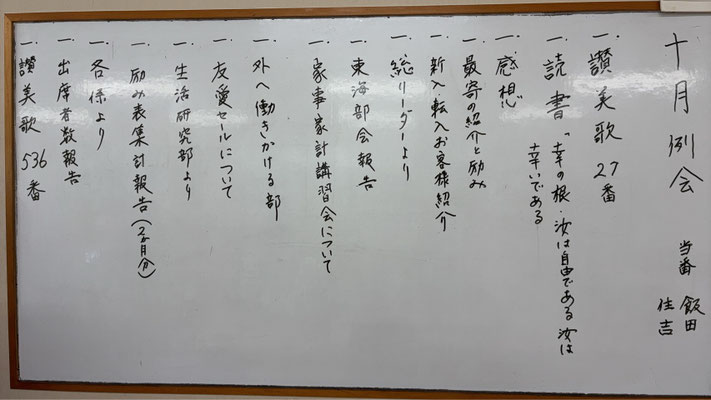 十月例会
当番 飯田
住吉
一. 讃美歌 27番
一. 読書「幸の根・汝は自由である 汝は
幸いである
一. 感想
一. 最寄の紹介と励み
一. 新入・転入お客様紹介
一. 総リーダーより
一. 東海部会報告
一. 家事家計講習会について
一. 外へ働きかける部
一. 友愛セールについて
一. 生活研究部より
一. 励み表集計報告(2ヶ月分)
一. 各係より
一. 出席者数報告
一. 讃美歌 536番